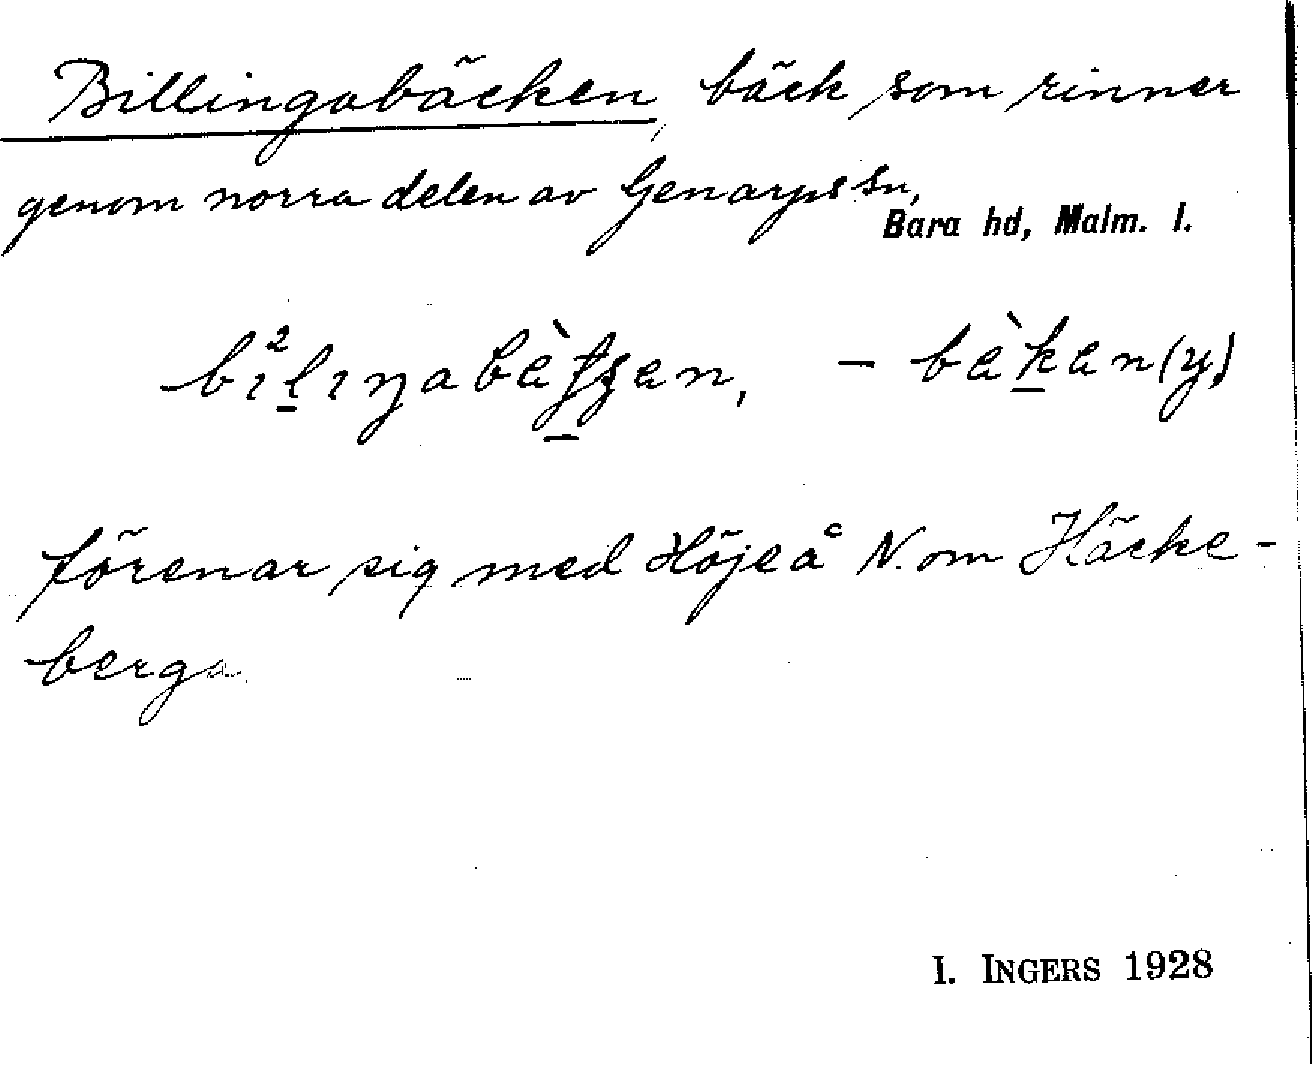 Billingabäcken, bäck som rinner
genom norra delen av Genarps sn,
Bara hd, Malm. l.
förenar sig med Höjeå N. om Häcke-
berga
I. INGERS 1928